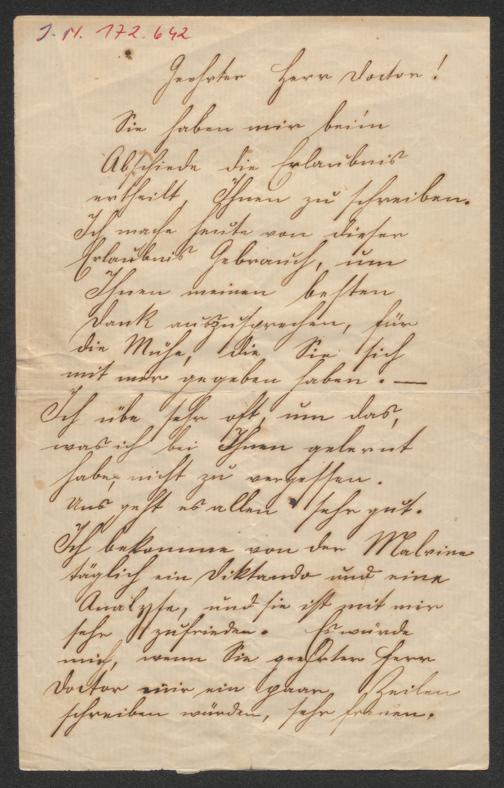 J. N. 172.642
Geehrter Herr Doctor!
Sie haben mir beim
Abschiede die Erlaubnis
ertheilt, Ihnen zu schreiben.
Ich mache heute von dieser
Erlaubnis Gebrauch, um
Ihnen meinen besten
Dank auszusprechen, für
die Mühe, die Sie sich
mit mir gegeben haben. —
Ich übe sehr oft, um das,
was ich bei Ihnen gelernt
habe, nicht zu vergessen.
Uns geht es allen sehr gut.
Ich bekomme von der Malvine
täglich ein Diktando und eine
Analyse, und sie ist mit mir
sehr zufrieden. Es würde
mich, wenn Sie geehrter Herr
Doctor mir ein paar Zeilen
schreiben würden, sehr freuen.